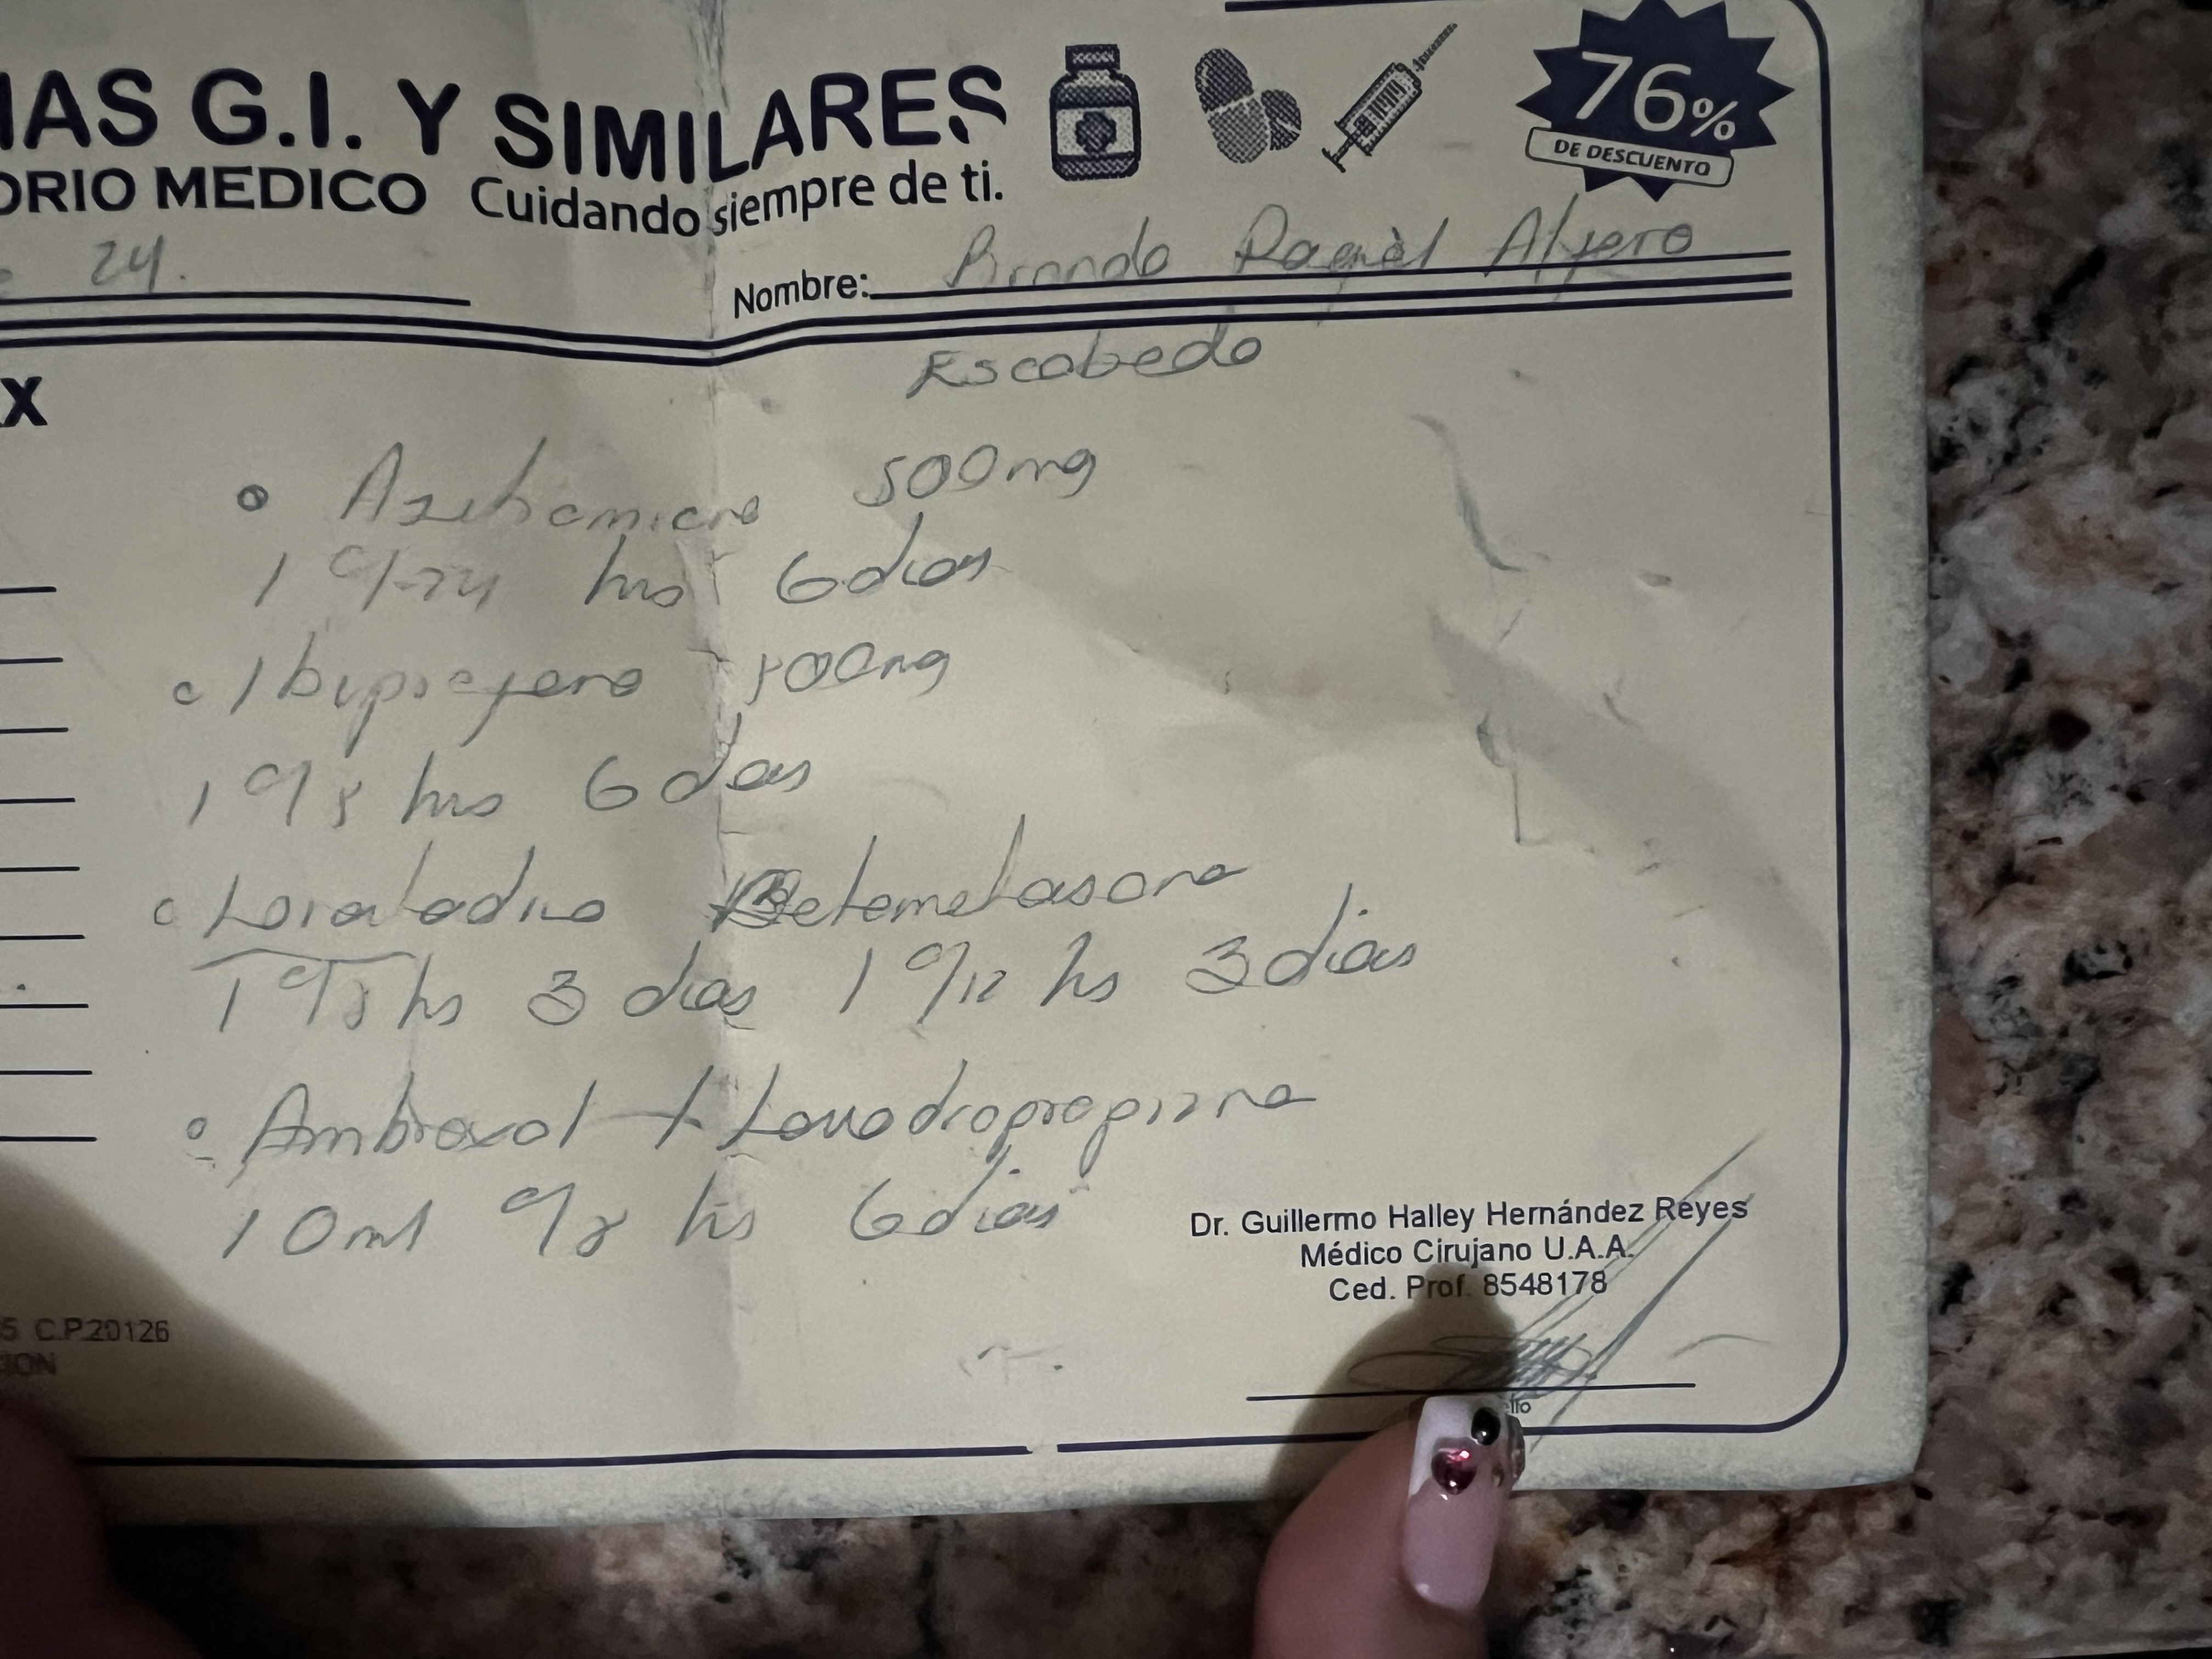 IAS G.I. Y SIMILARES
ORIO MEDICO Cuidando siempre de ti.
76%
DE DESCUENTO
24.
Nombre: Alfero
Escobedo
X
500mg
1 c/24 hrs 6 dias
Ibuprofeno
1 c/8 hrs 6 dias
Loratadina Betametasona
1 c/8 hs 3 dias 1 c/12 hs 3 dias
Ambroxol + Levodropropizina
10 ml c/8 hs 6 dias
Dr. Guillermo Halley Hernández Reyes
Médico Cirujano U.A.A.
Ced. Prof. 8548178
5 C.P.20126
ION